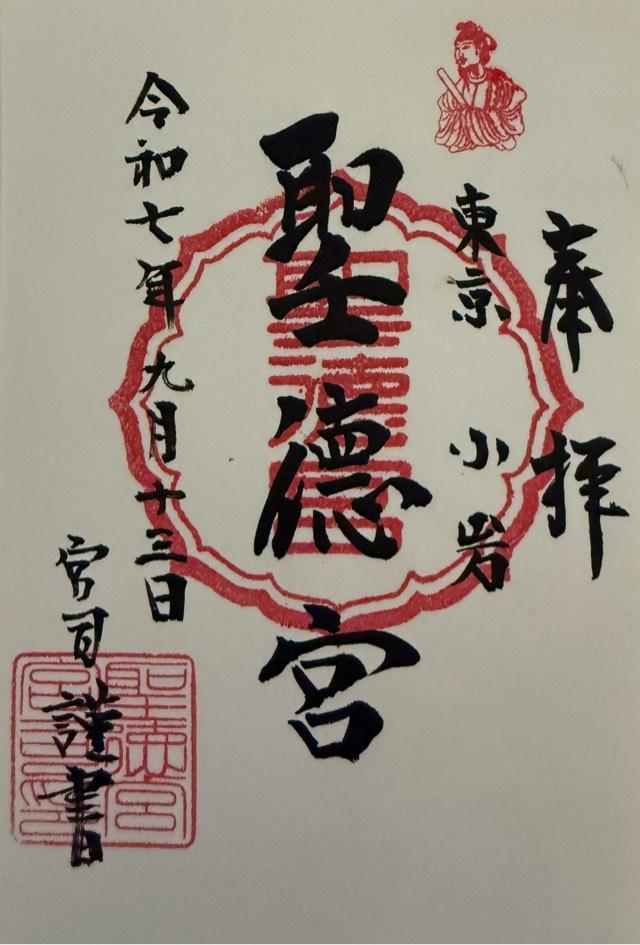 奉拝
東京 小岩
聖徳宮
聖徳宮
令和七年九月十三日
宮司 謹書
聖徳宮